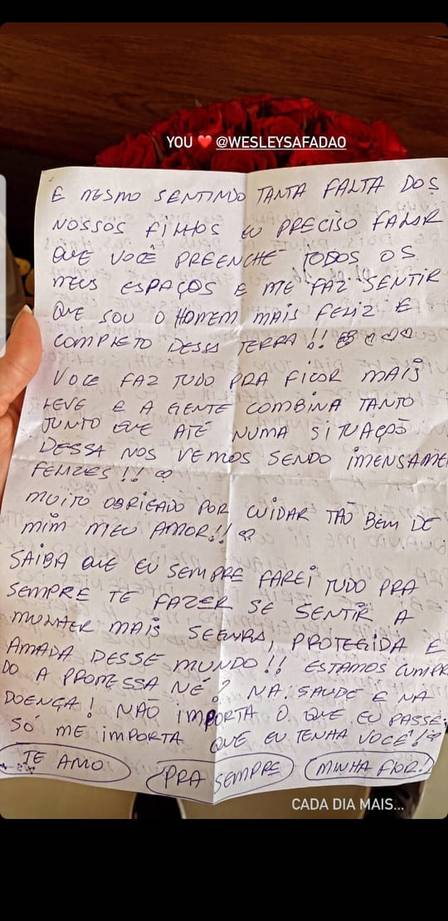 YOU ❤️ @WESLEYSAFADAO
E MESMO SENTINDO TANTA FALTA DOS
NOSSOS FILHOS EU PRECISO FALAR
QUE VOCÊ PREENCHE TODOS OS
MEUS ESPAÇOS E ME FAZ SENTIR
QUE SOU O HOMEM MAIS FELIZ E
COMPLETO DESSA TERRA!! ♡♡♡♡
VOCE FAZ TUDO PRA FICAR MAIS
LEVE E A GENTE COMBINA TANTO
JUNTO QUE ATÉ NUMA SITUAÇÃO
DESSA NOS VEMOS SENDO IMENSAME
FELIZES!! ♡
MUITO OBRIGADO POR CUIDAR TÃO BEM DE
MIM MEU AMOR!! ♡
SAIBA QUE EU SEMPRE FAREI TUDO PRA
SEMPRE TE FAZER SE SENTIR A
MULHER MAIS SEGURA, PROTEGIDA E
AMADA DESSE MUNDO!! ESTAMOS CUMPRI
DO A PROMESSA NÉ? NA SAUDE E NA
DOENÇA! NÃO IMPORTA O QUE EU PASSE
SÓ ME IMPORTA QUE EU TENHA VOCÊ!!
TE AMO PRA SEMPRE MINHA FLOR!
CADA DIA MAIS...